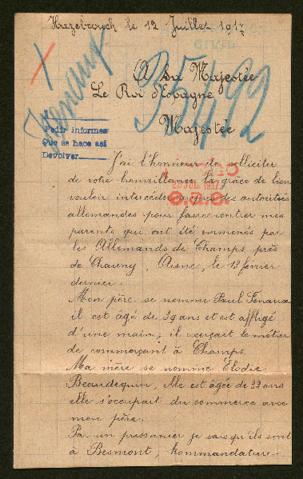 Hazebrouck le 12 Juillet 1917
A Sa Majestée
Le Roi d'Espagne
35492
Majestée
Pedir informes
Que se hace así
Devolver
J'ai l'honneur de solliciter
de votre bienveillance la grâce de bien
vouloir intercéder des autorités
allemandes pour faire mes
parents qui ont été emmenés par
les Allemands de Champs, près
de Chauny, Aisne, le 13 février
dernier.
Mon père se nomme Paul
il est âgé de 29 ans et est affligé
d'une main, il exerçait le métier
de commerçant à Champs.
Ma mère se nomme Elodie
Beaudequin, Elle est âgée de 22 ans
elle s'occupait du commerce avec
mon père.
Par un prisonnier je sais qu'ils sont
à Besmont, Kommandatur